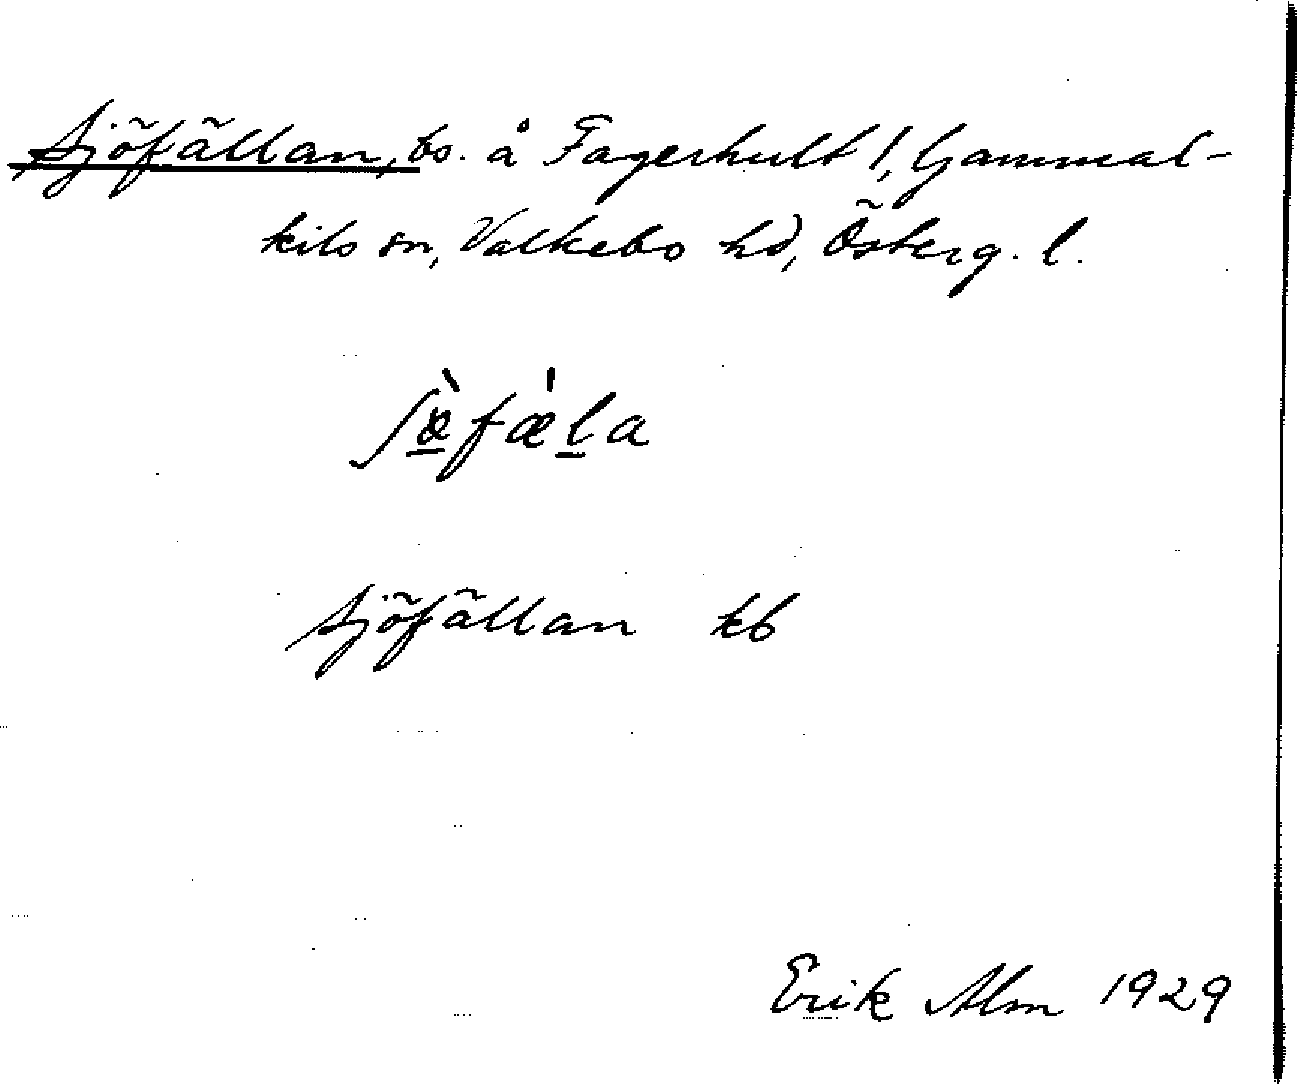 Sjöfällan, bs. å Fagerhult 1, Gammal-
kils sn, Valkebo hd, Österg. l.
Sjöfällan kb
Erik Alm 1929